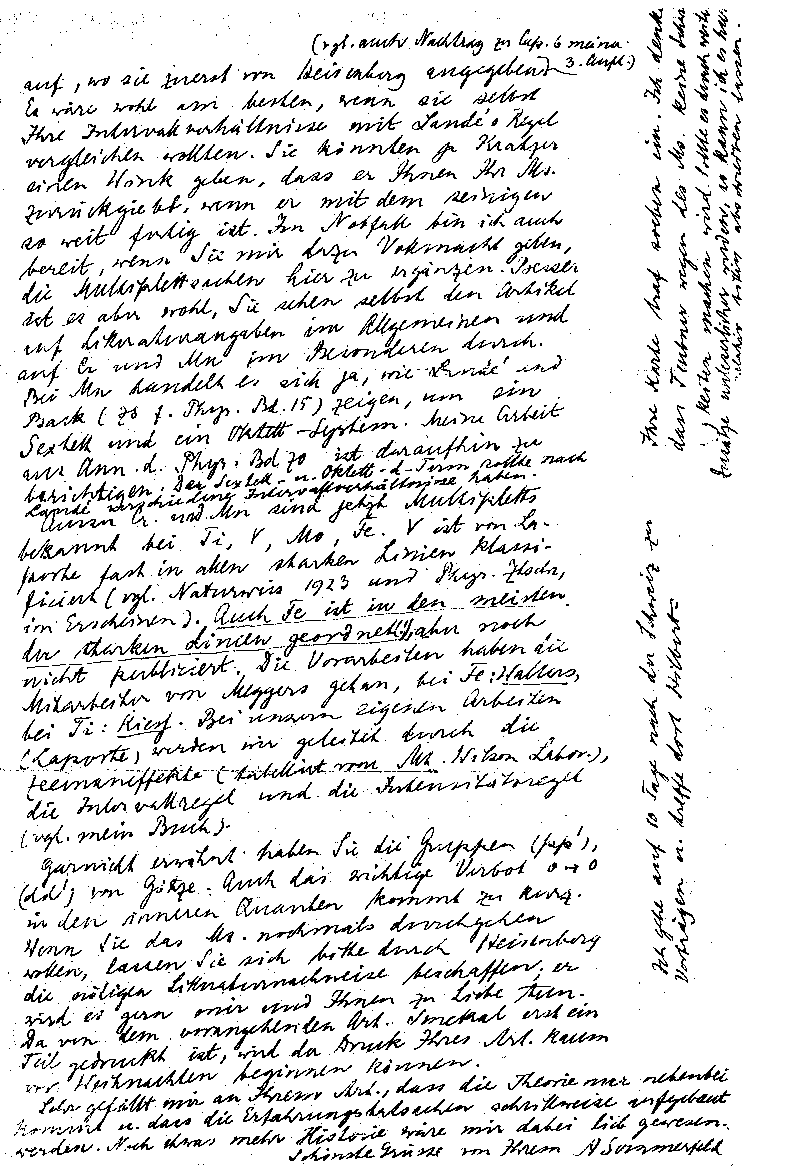 (vgl. auch Nachtrag zu Cap. 6 meiner
3. Aufl.)
auf, wo sie zuerst von Heisenberg angegeben
Es wäre wohl am besten, wenn sie selbst
Ihre Intervallverhältnisse mit Landé's Regel
vergleichen wollten. Sie könnten ja Kratzer
einen Wink geben, dass er Ihnen Ihr Ms.
zurückgiebt, wenn er mit dem seinigen
so weit fertig ist. Im Notfall bin ich auch
bereit, wenn Sie mir dazu Vollmacht geben,
die Multiplettsachen hier zu ergänzen. Besser
ist es aber wohl, Sie sehen selbst den Artikel
auf Literaturangaben im Allgemeinen und
auf Cr und Mn im Besonderen durch.
Bei Mn handelt es sich ja, wie Landé und
Back (ZS f. Phys. Bd. 15) zeigen, um ein
Sextett und ein Oktett-System. Meine Arbeit
aus Ann. d. Phys. Bd 70 ist daraufhin zu
berichtigen. Der Sextett- u. Oktett-d-Term sollte nach
Landé verschiedene Intervallverhältnisse haben.
Ausser Cr. und Mn sind jetzt Multipletts
bekannt bei Ti, V, Mo, Fe. V ist von La-
porte fast in allen starken Linien klassi-
ficiert (vgl. Naturwiss 1923 und Phys. Ztschr,
im Erscheinen). Auch Fe ist in den meisten
der starken Linien geordnet(!), aber noch
nicht publiziert. Die Vorarbeiten haben die
Mitarbeiter von Meggers getan, bei Fe: Walters,
bei Ti: Kiess. Bei unsern eigenen Arbeiten
(Laporte) werden wir geleitet durch die
Zeemaneffekte (tabelliert vom Mt. Wilson Labor.),
die Intervallregel und die Intensitätsregel
(vgl. mein Buch).
Garnicht erwähnt haben Sie die Gruppen (pp'),
(dd') von Götze. Auch das wichtige Verbot 0→0
in den inneren Quanten kommt zu kurz.
Wenn Sie das Ms. nochmals durchgehen
wollen, lassen Sie sich bitte durch Heisenberg
die nötigen Literaturnachweise beschaffen; er
wird es gern mir und Ihnen zu Liebe thun.
Da von dem vorangehenden Art. Smekal erst ein
Teil gedruckt ist, wird der Druck Ihres Art. kaum
vor Weihnachten beginnen können.
Sehr gefällt mir an Ihrem Art., dass die Theorie nur nebenbei
kommt u. dass die Erfahrungstatsachen schrittweise aufgebaut
werden. Noch etwas mehr Historie wäre mir dabei lieb gewesen.
Schönste Grüsse von Ihrem ASommerfeld
Ihre Karte traf soeben ein. Ich denke
dass Teubner wegen des Ms. keine Schwierig
keiten machen wird. Sollte es durch weitere
Zusätze unleserlicher werden, so kann ich es hier
abschreiben lassen.
Ich gehe auf 10 Tage nach der Schweiz zu
Vorträgen u. treffe dort Hilbert.